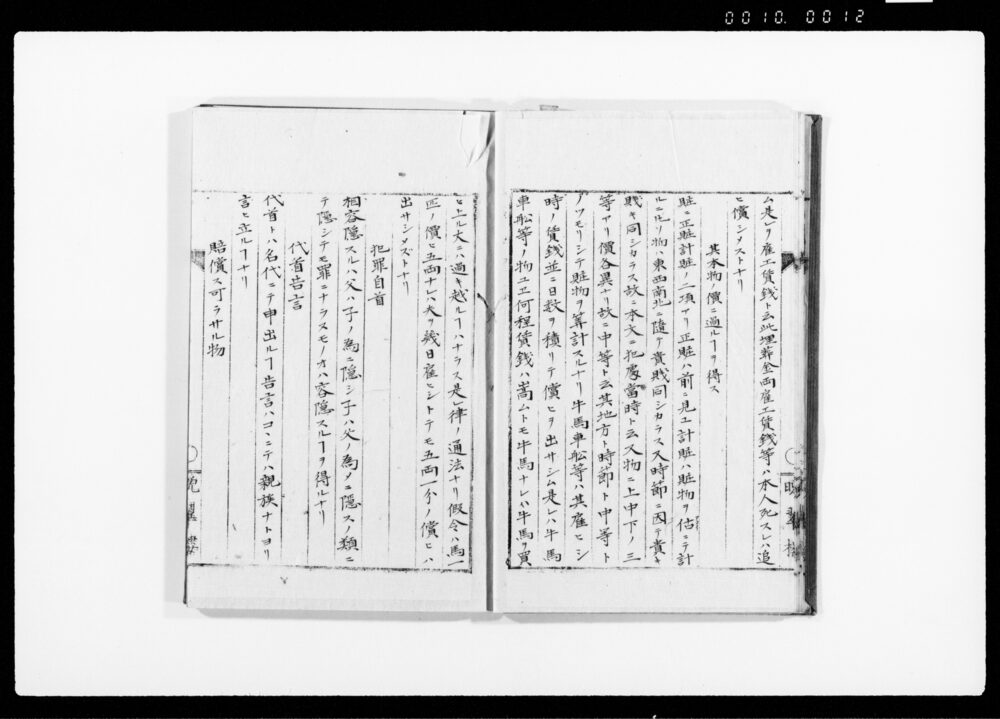 0010. 0012
ム是レヲ雇工賃銭ト云此埋葬金両雇工賃銭等ハ本人死スレハ追
ヒ償シメストナリ
其本物ノ價ニ過ルヿヲ得ス
賍ニ正賍計賍ノ二項アリ正賍ハ前ニ見ユ計賍ハ賍物ヲ估ニテ計
ルニ物ハ東西南北ニ隨テ貴賎同シカラス又時節ニ因テ貴キ
賎キ同シカラス故ニ本文ニ犯處當時ト云又物ニ上中下ノ三
等アリ價各異ナリ故ニ中等ト云其地方ト時節ト中等ト
ノツモリシテ賍物ヲ算計スルナリ牛馬車舩等ハ其雇ヒシ
時ノ賃銭並ニ日数ヲ積リテ償ヒヲ出サシム是レハ牛馬
車舩等ノ物ユエ何程賃銭ハ嵩ムトモ牛馬ナレハ牛馬ヲ買
ヒ上ル大ニハ過キ越ルヿハナラス是レ律ノ通法ナリ假令ハ馬一
匹ノ價ヒ五両ナレハ夫ヲ幾日雇ヒシトテモ五両一分ノ償ヒハ
出サシメズトナリ
犯罪自首
相容隠スルハ父ハ子ノ為ニ隠シ子ハ父ノ為メニ隠スノ類ニ
テ隠シテモ罪ニナラスモノオハ容隠スルヿヲ得ルナリ
代首告言
代首トハ名代ニテ申出ルヿ告言ハコヽニテハ親族ナトヨリ
言ヒ立ルヿナリ
賠償ス可ラサル物